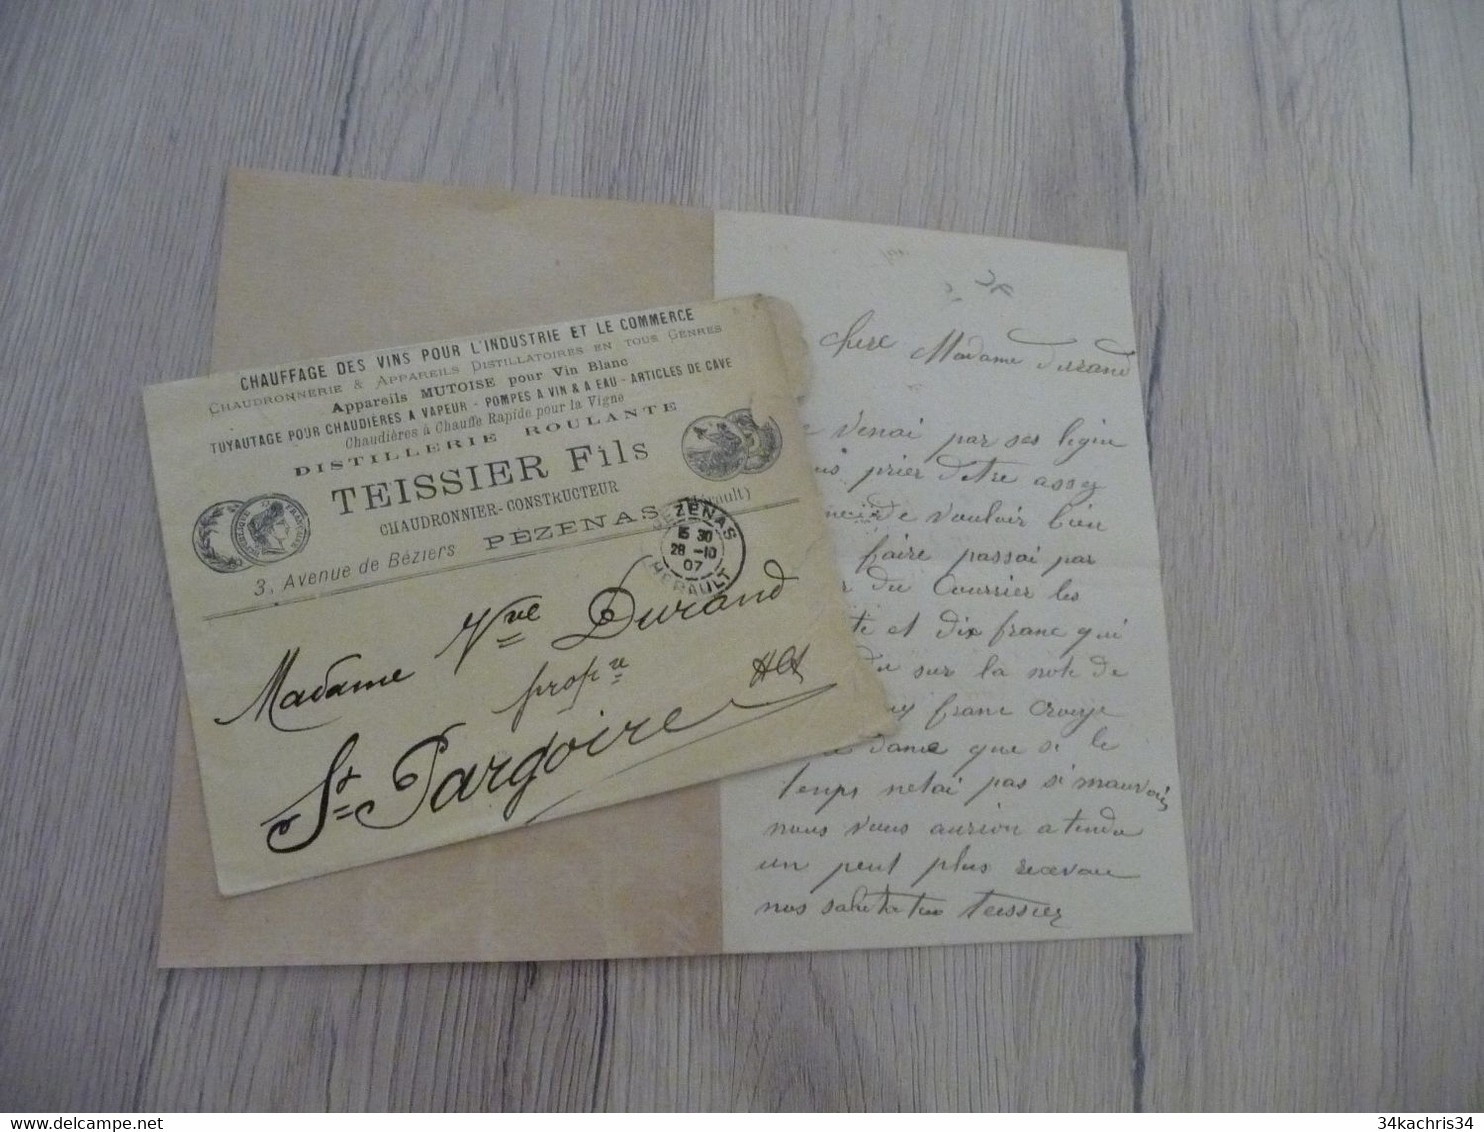 CHAUFFAGE DES VINS POUR L'INDUSTRIE ET LE COMMERCE
CHAUDRONNERIE & APPAREILS DISTILLATOIRES EN TOUS GENRES
Appareils MUTOISE pour Vin Blanc
TUYAUTAGE POUR CHAUDIÈRES A VAPEUR - POMPES A VIN & A EAU - ARTICLES DE CAVE
Chaudières à Chauffe Rapide pour la Vigne
DISTILLERIE ROULANTE
TEISSIER Fils
CHAUDRONNIER-CONSTRUCTEUR
3, Avenue de Béziers PÉZENAS (Hérault)
PÉZENAS
15 30
28 -10
07
HERAULT
Madame Vve Durand
propre
St Pargoire
Chere Madame Durand
Venai par ses ligne
prier d'etre assez
de vouloir bien
faire passai par
du Courrier les
et dix franc qui
sur la note de
franc Croyez
dame que si le
temps netai pas si mauvais
nous vous aurion atendu
un peut plus recevau
nos salutation Teissier
34kachris34
delcampe.net